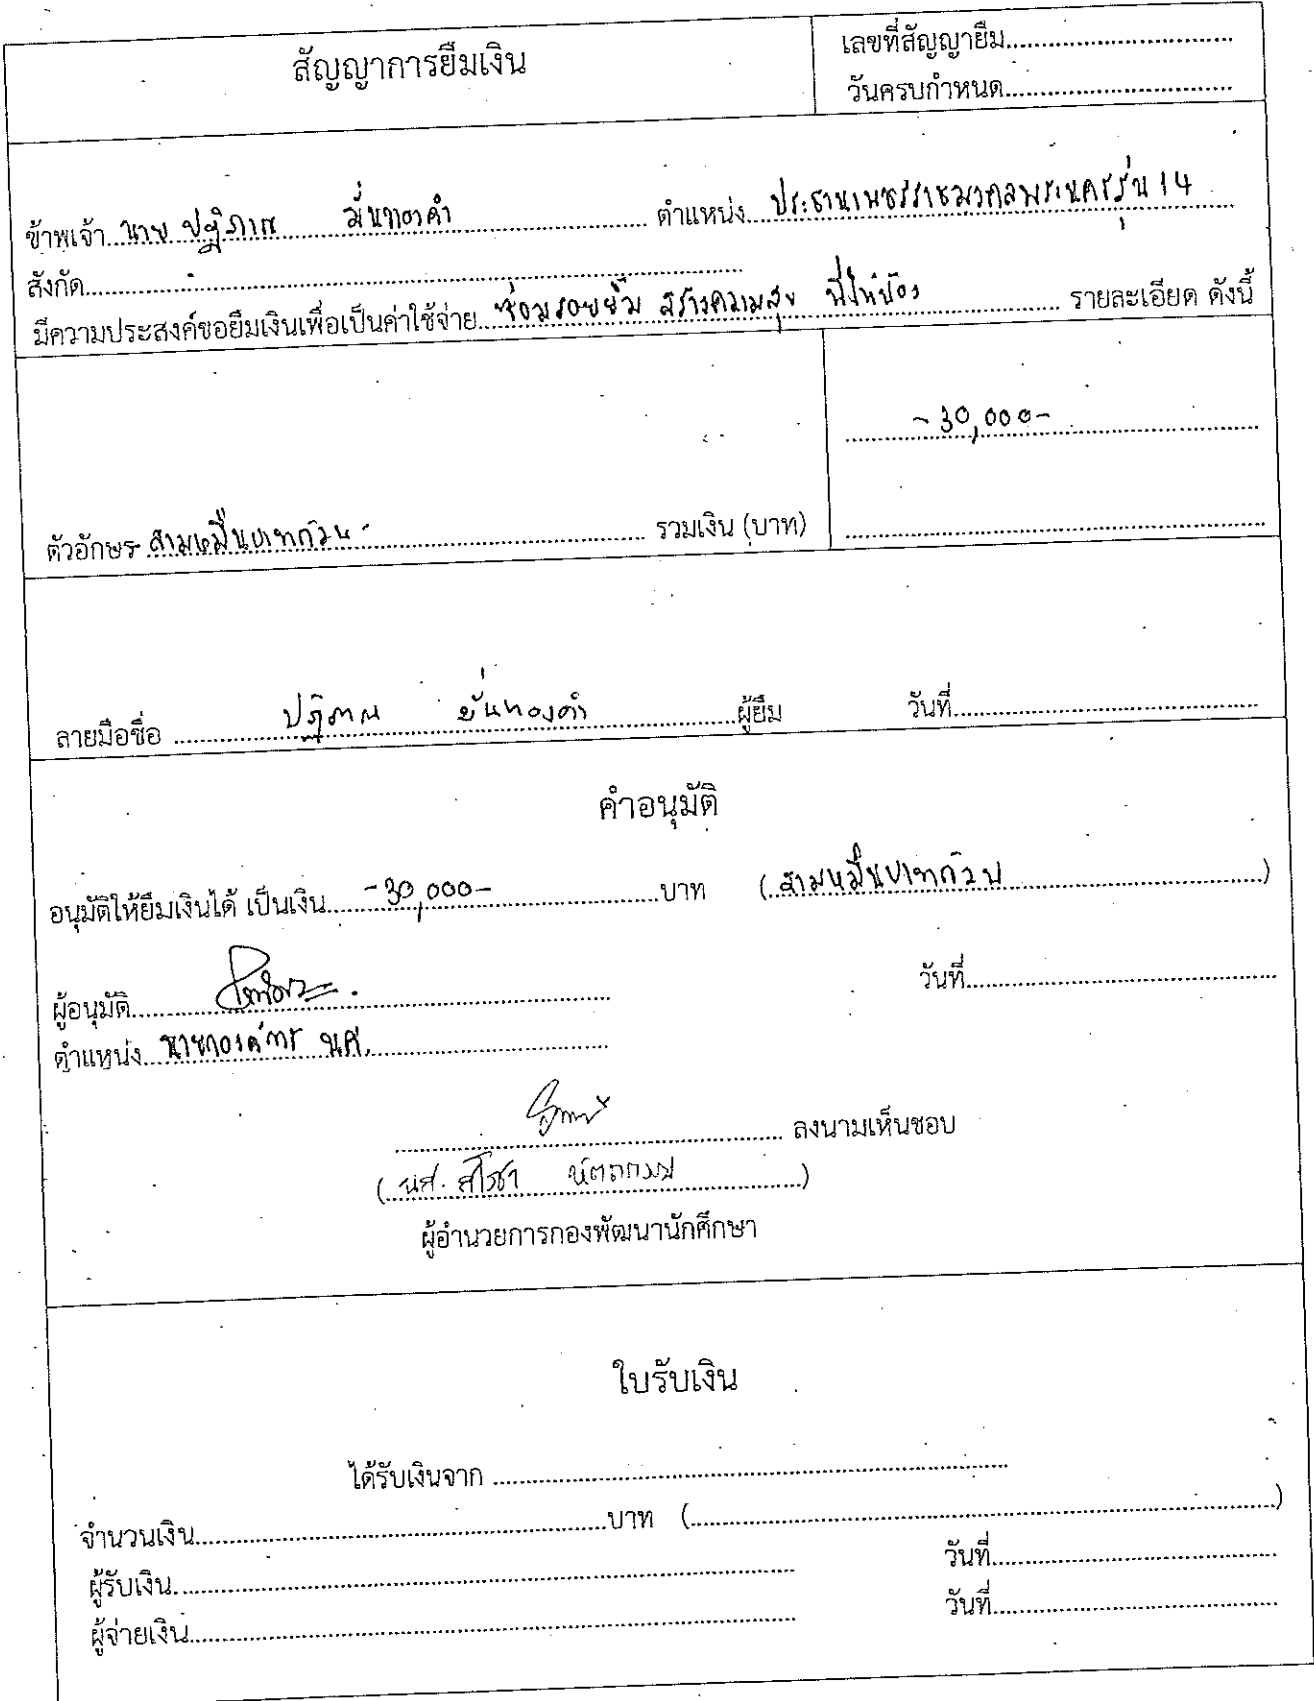 สัญญาการยืมเงิน
เลขที่สัญญายืม..............................
วันครบกำหนด..............................
ข้าพเจ้า นาย ปฏิภาณ มั่นทองคำ ตำแหน่ง ประธานเพชรราชมงคลพระนครรุ่น 14
สังกัด..............................
มีความประสงค์ขอยืมเงินเพื่อเป็นค่าใช้จ่าย ซ่อมรอยยิ้ม สร้างความสุข พี่ให้น้อง รายละเอียด ดังนี้
-30,000-
ตัวอักษร สามหมื่นบาทถ้วน รวมเงิน (บาท) ..............................
ลายมือชื่อ ปฏิภาณ มั่นทองคำ ผู้ยืม วันที่..............................
คำอนุมัติ
อนุมัติให้ยืมเงินได้ เป็นเงิน -30,000- บาท (สามหมื่นบาทถ้วน)
ผู้อนุมัติ.............................. วันที่..............................
ตำแหน่ง นายกองค์การ นศ.
.............................. ลงนามเห็นชอบ
( นส. )
ผู้อำนวยการกองพัฒนานักศึกษา
ใบรับเงิน
ได้รับเงินจาก ..............................
จำนวนเงิน..............................บาท (..............................)
ผู้รับเงิน.............................. วันที่..............................
ผู้จ่ายเงิน.............................. วันที่..............................